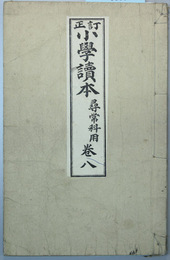 訂正
小學讀本
尋常科用
卷八